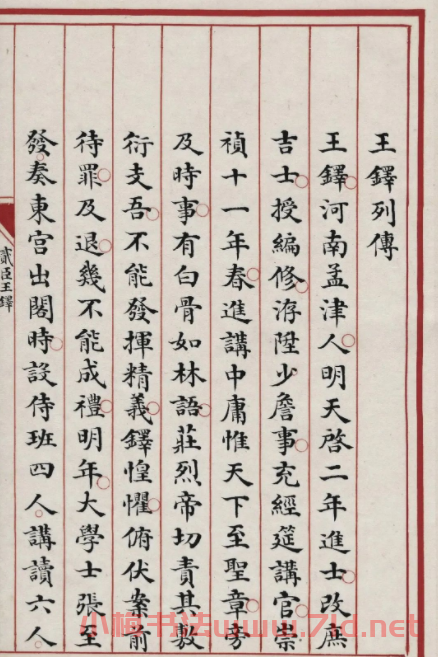 王鐸列傳
王鐸河南孟津人明天啓二年進士改庶
吉士授編修洊陞少詹事充經筵講官崇
禎十一年春進講中庸惟天下至聖章旁
及時事有白骨如林語莊烈帝切責其敷
衍支吾不能發揮精義鐸惶懼俯伏案前
待罪及退幾不能成禮明年大學士張至
發奏東宮出閣時設侍班四人講讀六人
貳臣王鐸
小楷书法www.7ld.net